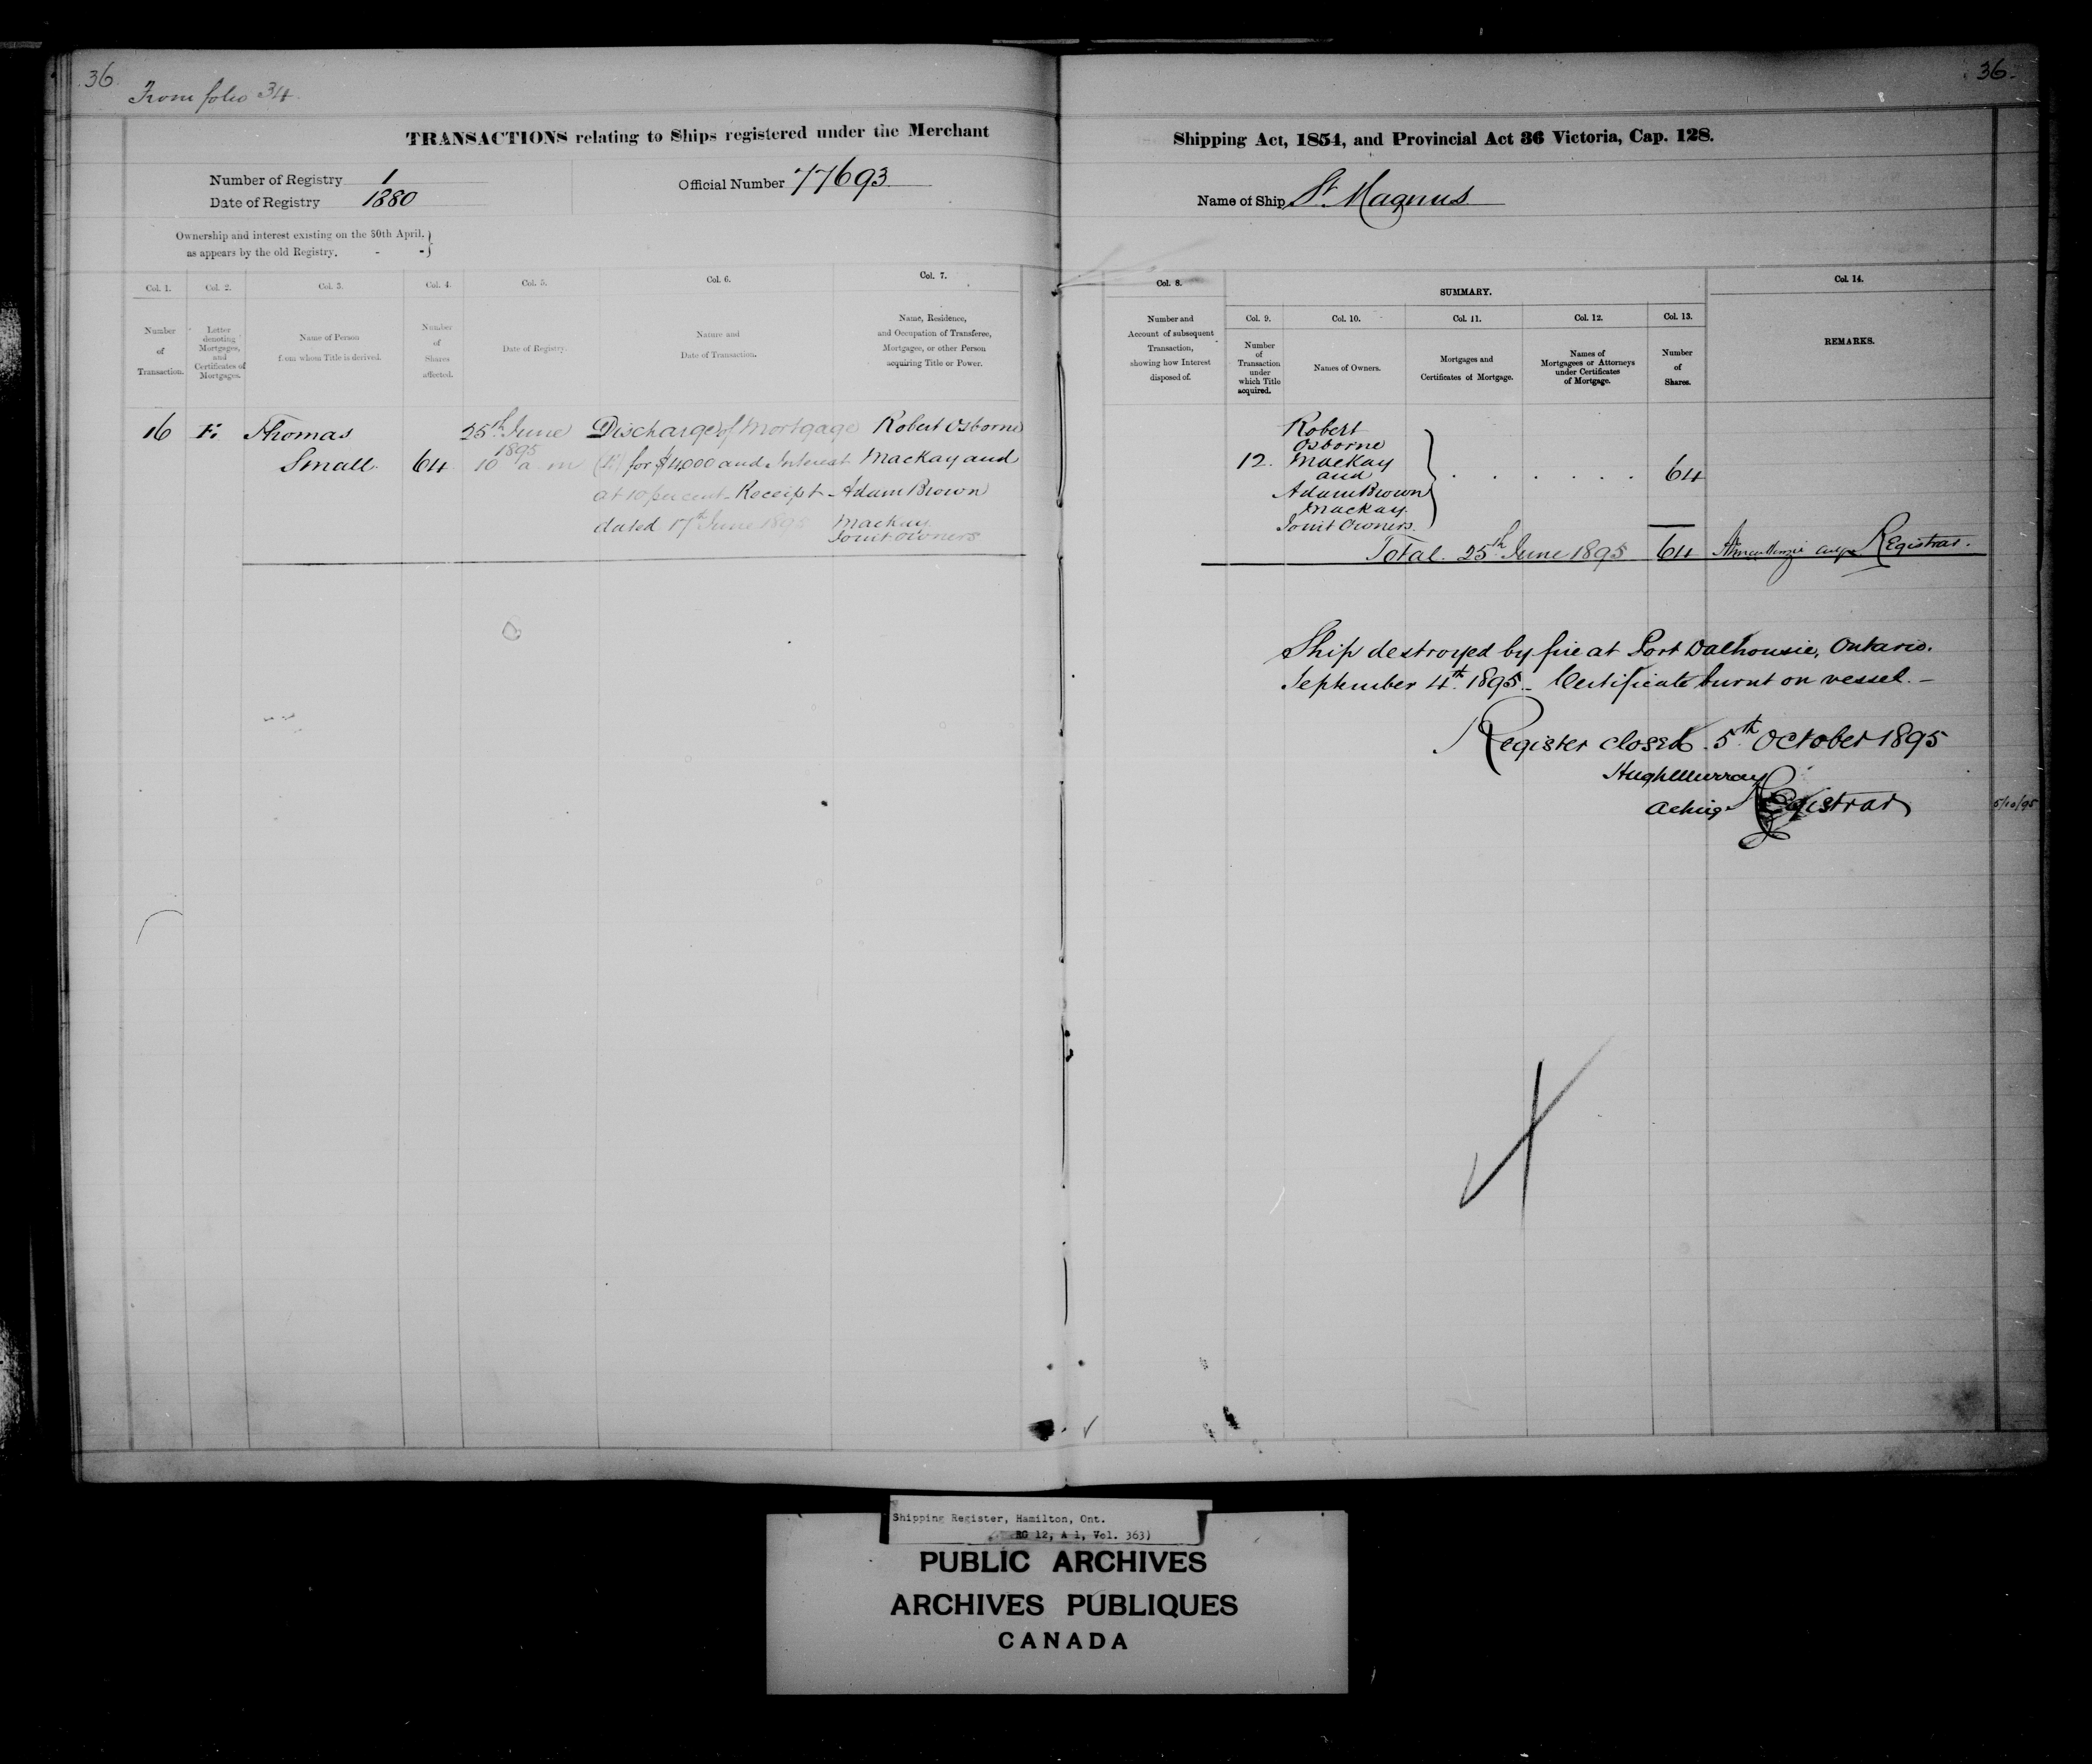 36
From folio 34
TRANSACTIONS relating to Ships registered under the Merchant
Number of Registry 1
Date of Registry 1880
Official Number 77693
Ownership and interest existing on the 30th April,
as appears by the old Registry. - -
Col. 1.
Col. 2.
Col. 3.
Col. 4.
Col. 5.
Col. 6.
Col. 7.
Number
of
Transaction.
Letter
denoting
Mortgages,
and
Certificates of
Mortgages.
Name of Person
from whom Title is derived.
Number
of
Shares
affected.
Date of Registry.
Nature and
Date of Transaction.
Name, Residence,
and Occupation of Transferee,
Mortgagee, or other Person
acquiring Title or Power.
16
Thomas
Small.
64
25th June
1895
10 a.m
Discharge of Mortgage
for $4,000 and Interest
at 10 per cent. Receipt
dated 17th June 1895
Robert Osborne
Mackay and
Adam Brown
Mackay
Joint owners
36
Shipping Act, 1854, and Provincial Act 36 Victoria, Cap. 128.
Name of Ship St. Magnus
Col. 8.
SUMMARY.
Col. 14.
Number and
Account of subsequent
Transaction,
showing how Interest
disposed of.
Col. 9.
Col. 10.
Col. 11.
Col. 12.
Col. 13.
Number
of
Transaction
under
which Title
acquired.
Names of Owners.
Mortgages and
Certificates of Mortgage.
Names of
Mortgagees or Attorneys
under Certificates
of Mortgage.
Number
of
Shares.
REMARKS.
12.
Robert
Osborne
Mackay
and
Adam Brown
Mackay.
Joint Owners.
64
Total. 25th June 1895 64 Registrar.
Ship destroyed by fire at Port Dalhousie, Ontario.
September 4th. 1895. Certificate burnt on vessel. -
Register closed 5th October 1895
Hugh Murray
Acting Registrar
5/10/95
Shipping Register, Hamilton, Ont.
RG 12, A 1, Vol. 363)
PUBLIC ARCHIVES
ARCHIVES PUBLIQUES
CANADA